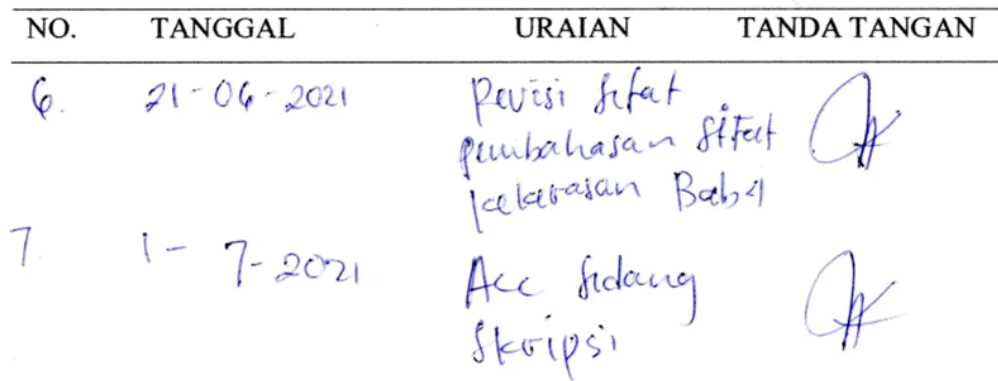 NO. TANGGAL URAIAN TANDA TANGAN
6. 21-06-2021 Revisi Sifat
pembahasan Sifat
kekerasan Bab 4
7. 1-7-2021 Acc Sidang
Skripsi